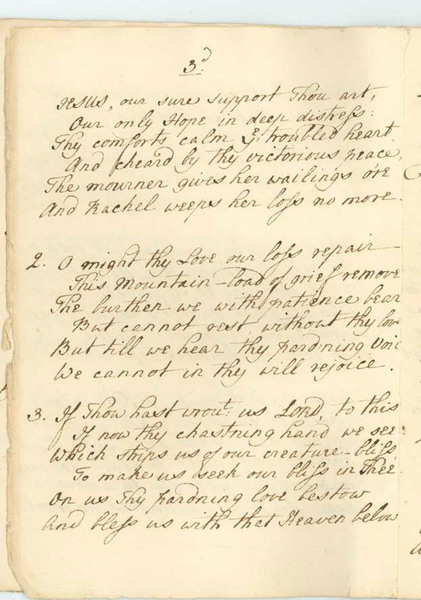 3.d
Jesus, our sure support Thou art,
Our only Hope in deep distress:
Thy comforts calm ye troubled heart
And cheard by thy victorious peace,
The mourner gives her wailings ore
And Rachel weeps her loss no more.
2. O might thy Love our loss repair
This Mountain-load of grief remove
The burthen we with patience bear
But cannot rest without thy love
But till we hear thy pardning Voic
We cannot in thy will rejoice.
3. If Thou hast wrot: us Lord, to this
If now thy chastning hand we see
Which strips us of our creature-bliss
To make us seek our bliss in Thee
On us Thy pardning love bestow
And bless us with that Heaven below